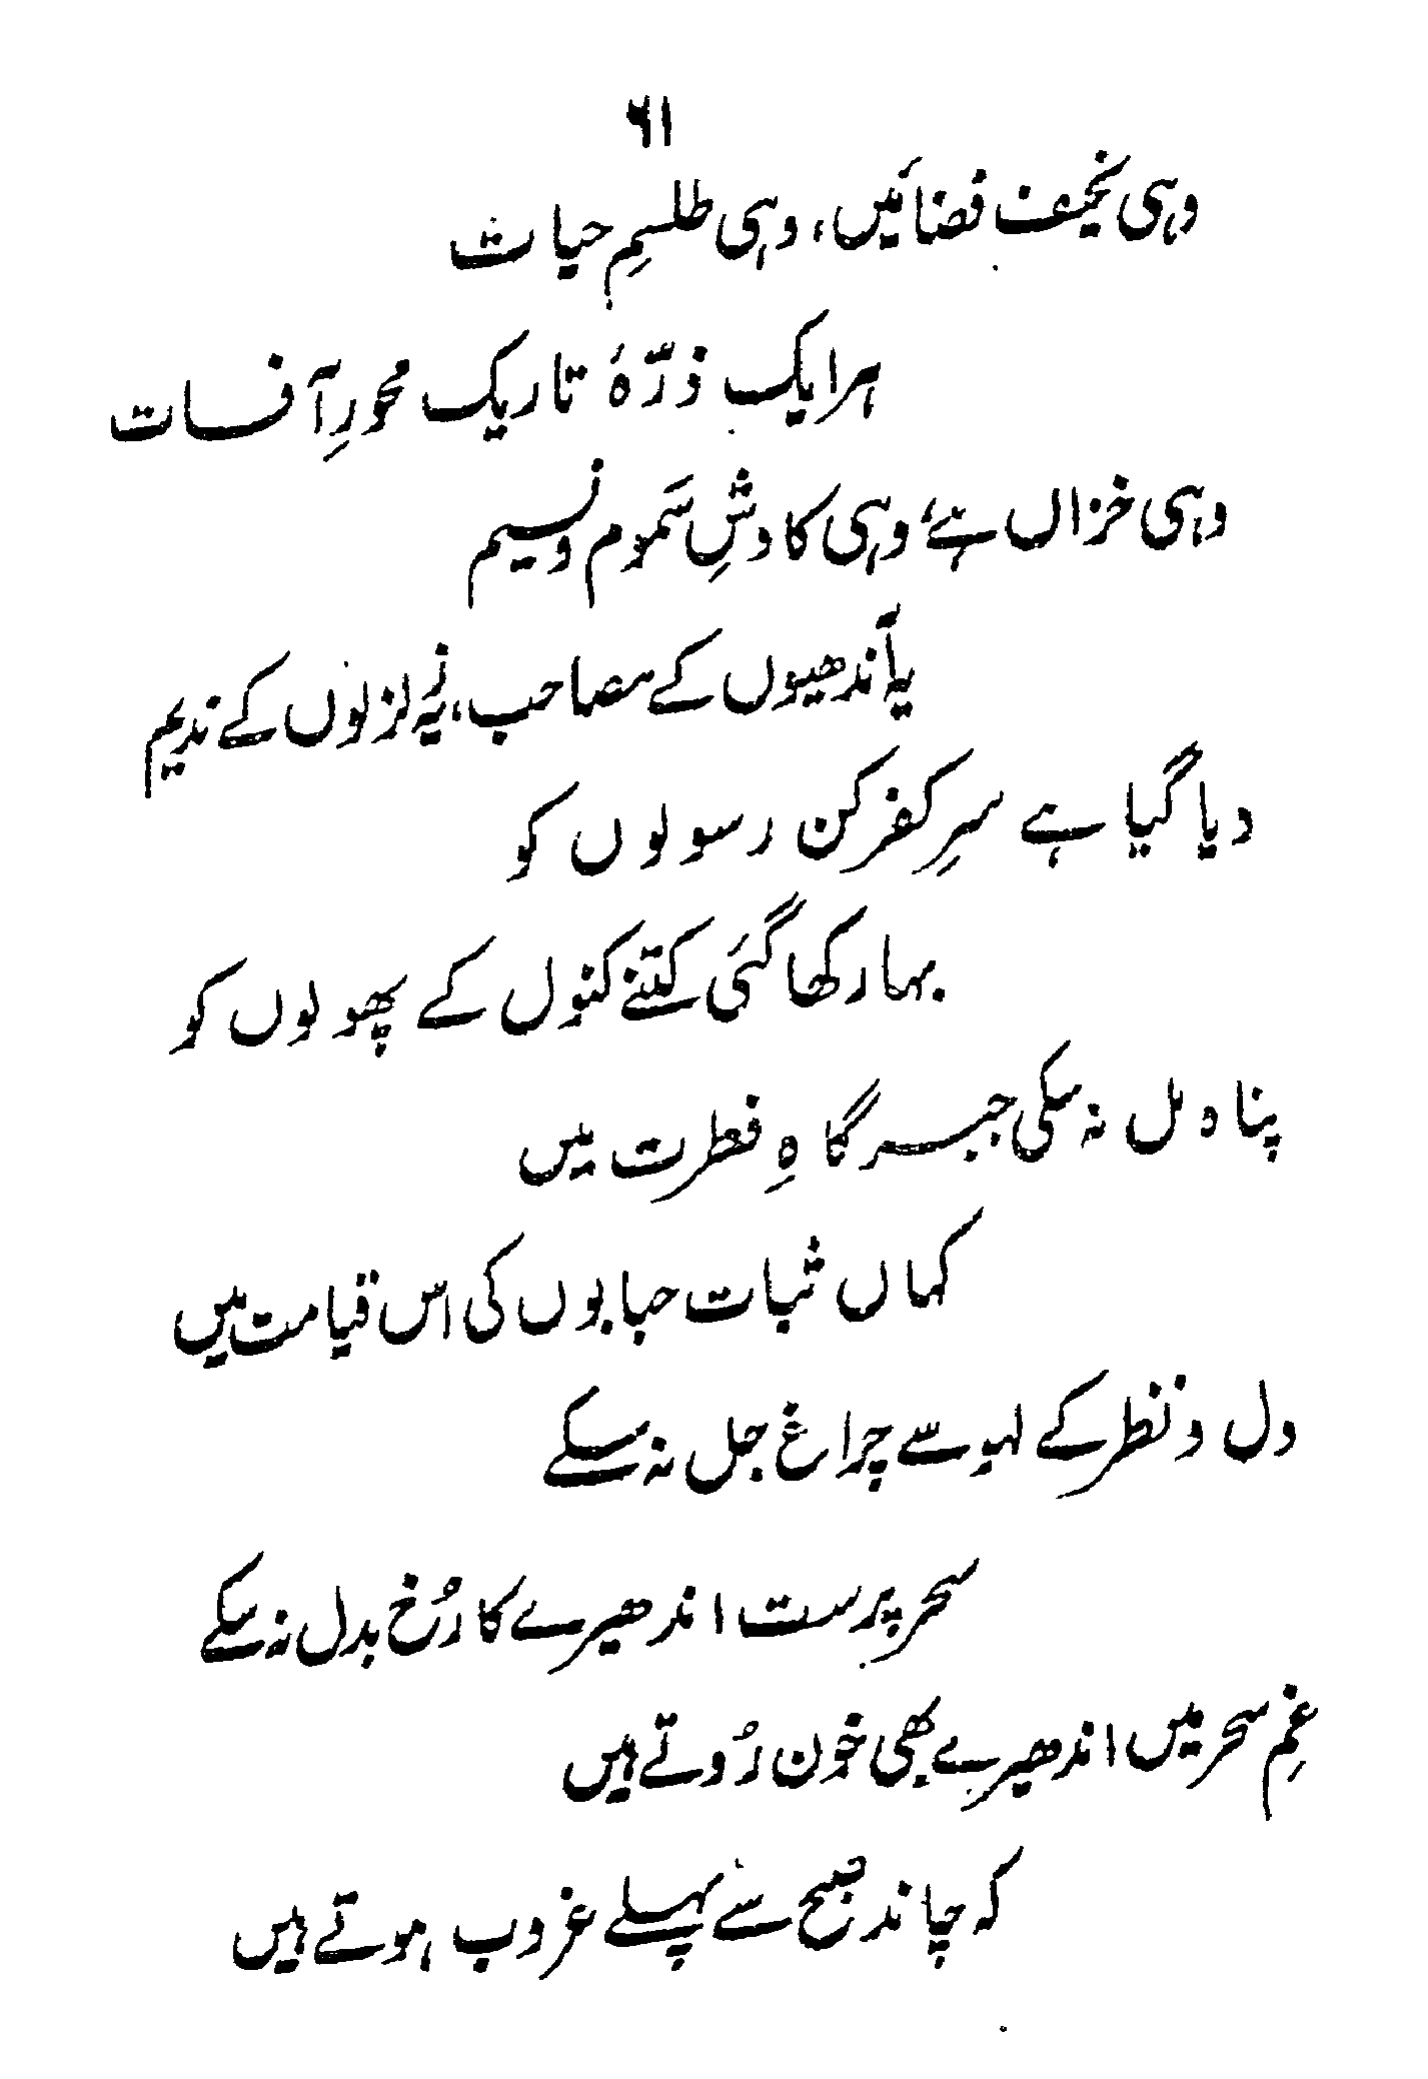 ۶۱
وہی نحیف فضائیں، وہی طلسمِ حیات
ہر ایک ذرّۂ تاریک محورِ آفات
وہی خزاں ہے، وہی کاوشِ سَموم و نسیم
یہ آندھیوں کے مصاحب، یہ زلزلوں کے ندیم
دیا گیا ہے سرِ کفر کن رسولوں کو
بہار کھا گئی کتنے کنول کے پھولوں کو
پناہ مل نہ سکی جبر گاہِ فطرت میں
کہاں ثبات حبابوں کی اس قیامت میں
دل و نظر کے لہو سے چراغ جل نہ سکے
سحر پرست اندھیرے کا رُخ بدل نہ سکے
غمِ سحر میں اندھیرے بھی خون رُوتے ہیں
کہ چاند صبح سے پہلے غروب ہوتے ہیں